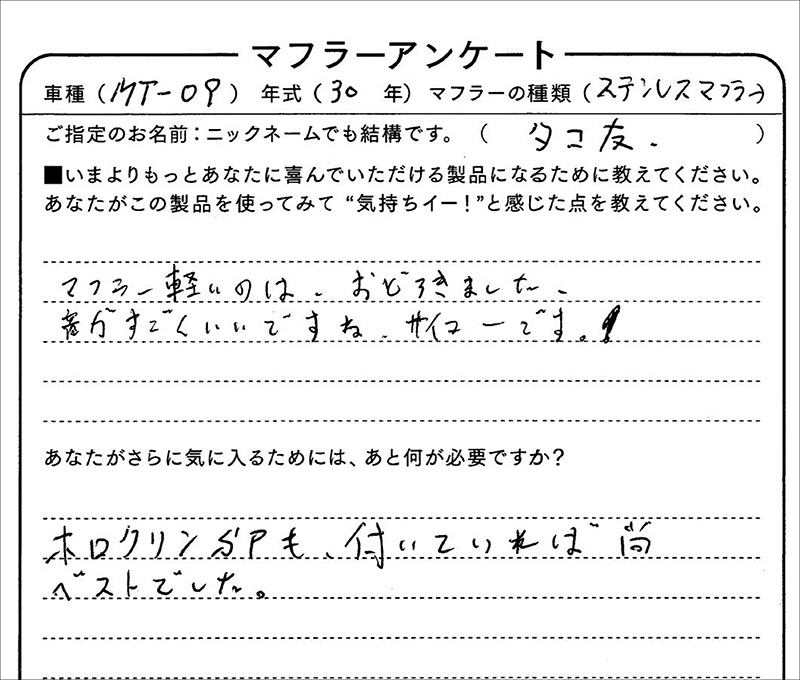 マフラーアンケート
車種(MT-09) 年式(30 年) マフラーの種類(ステンレスマフラー)
ご指定のお名前:ニックネームでも結構です。( タコ友. )
■いまよりもっとあなたに喜んでいただける製品になるために教えてください。
あなたがこの製品を使ってみて “気持ちイー!”と感じた点を教えてください。
マフラー軽いのは、おどろきました、
音がすごくいいですね、サイコーです。!
あなたがさらに気に入るためには、あと何が必要ですか?
ホログリン も、付いていれば尚
ベストでした。